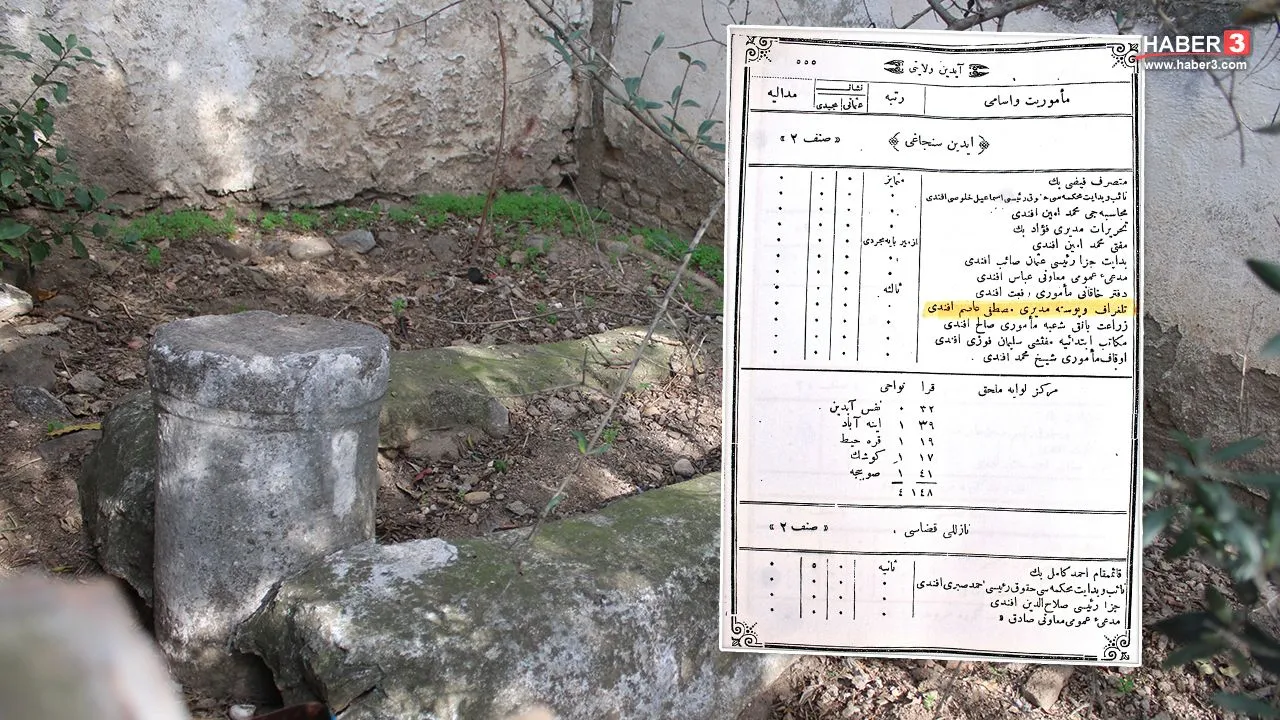 HABER 3
www.haber3.com
٥٥٥
آیدین ولایتی
مأموریت واسامی
رتبه
نشانـ
عثمانی
مجیدی
مدالیه
ایدین سنجاغی
« صنف ٢ »
متصرف فیضی بك
متمایز
نائب وبدایت محكمه سی حقوق رئیسی اسماعیل خلوصی افندی
محاسبه جی محمد امین افندی
تحریرات مدیری فؤاد بك
مفتی محمد امین افندی
ازمیر پایه مجردی
بدایت جزا رئیسی عثمان صائب افندی
مدعیء عمومی معاونی عباس افندی
دفتر خاقانی مأموری رفعت افندی
ثالثه
تلغراف وپوسته مدیری مصطفی عاصم افندی
زراعت بانق شعبه مأموری صالح افندی
مكاتب ابتدائیه مفتشی سلیمان فوزی افندی
اوقاف مأموری شیخ محمد افندی
مركز لوایه ملحق
قرا
نواحی
٣٢ ٠ نفس آیدین
٣٩ ١ اینه آباد
١٩ ١ قره حیط
١٧ ١ كوشك
٤١ ١ صوبیجه
١٤٨ ٤
نازللی قضاسی
« صنف ٢ »
قائمقام احمد كامل بك
ثانیه
٥
نائب وبدایت محكمه سی حقوق رئیسی احمد صبری افندی
جزا رئیسی صلاح الدین افندی
مدعیء عمومی معاونی صادق »